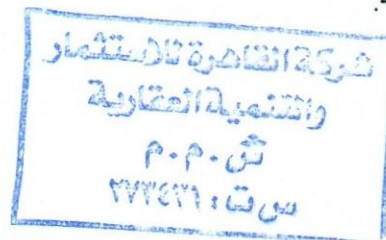 شركة القاهرة للاستثمار
والتنمية العقارية
ش.م.م
س ت: ٢٧٣٤٣٦